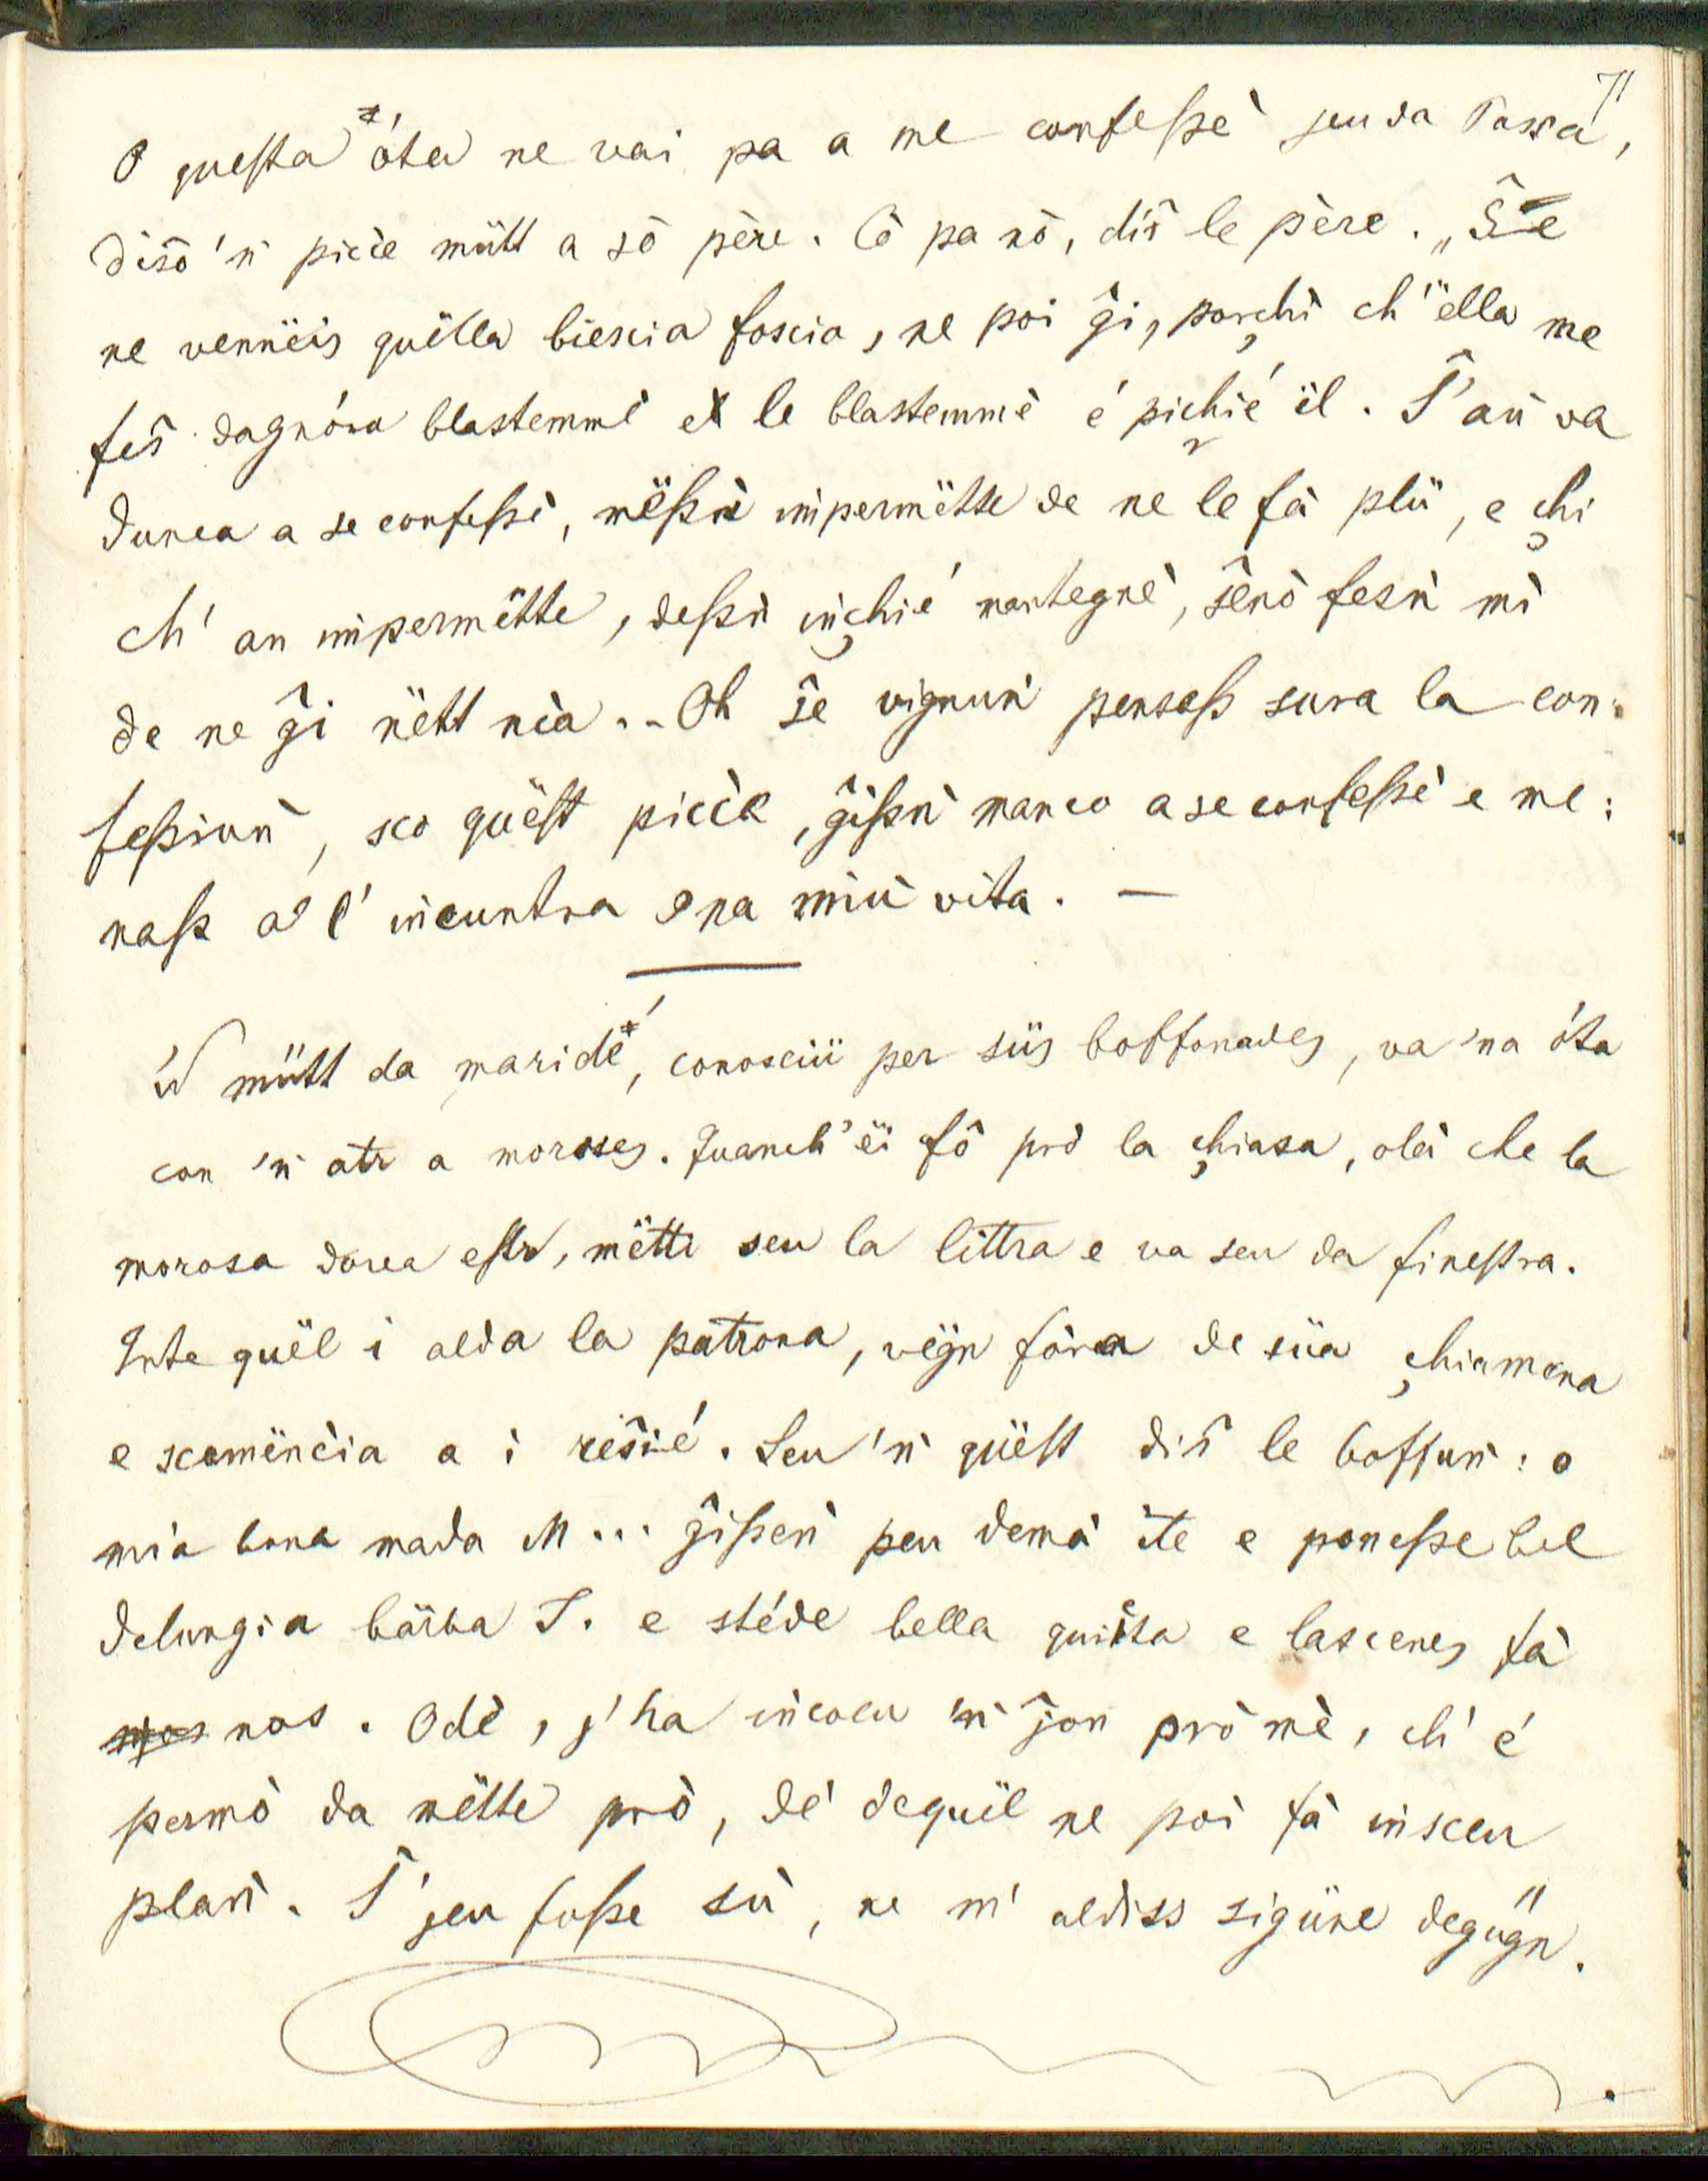 71
O questa óta ne vai pa a me confeſsè jeu da Pasca,
diŝô 'ǹ picće mütt a sò père. Cô pa nô, diŝ le père. „Ŝe
ne vennëis quëlla biescia foscia, ne poi ĝi, porçhi ch' ëlla me
feŝ dagnóra blastemmè e le blastemmè é piçhié ël. Ŝ' aǹ va
dunca a se confeſsè, mëſsǹ impermëtte de ne le fà plü, e çhi
ch' an impermëtte, deſsǹ iǹçhié mantegnè, ŝenò fesǹ mì
de ne ĝi nëtt nia... Oh ŝe vignuǹ pensaſs sura la con:
feſsiuǹ, sco quëſt picće, ĝiſsǹ manco a se confeſsè e me:
naſs a l' incuntra óna miù vita. —
'Ǹ mütt da maridè, conosciü per süs boffonades, va 'na óta
con 'ǹ atr a moroses. Quanch' ëi fô prò la çhiasa, olà che la
morosa dorea eſtr, mëtti seu la littra e va seu da fineſtra.
Inte quël i alda la patrona, vëgn fòra de süa çhiamena
e scomëncia a i reŝié. Seu 'ǹ quëſt diŝ le boffuǹ: o
mia bona mada M... ĝiſseǹ peu demà ite e poneſse bel
delungia bärba J. e stéde bella quiëta e lascenes fà
nos. Odè, j' ha incoeu 'ǹ ĵon prò mè, ch' é
permò da mëtte prò, dé dequël ne poi fà insceu
plaǹ. Ŝ' jeu foſse sù, ne m' aldiss sigüne degügn.